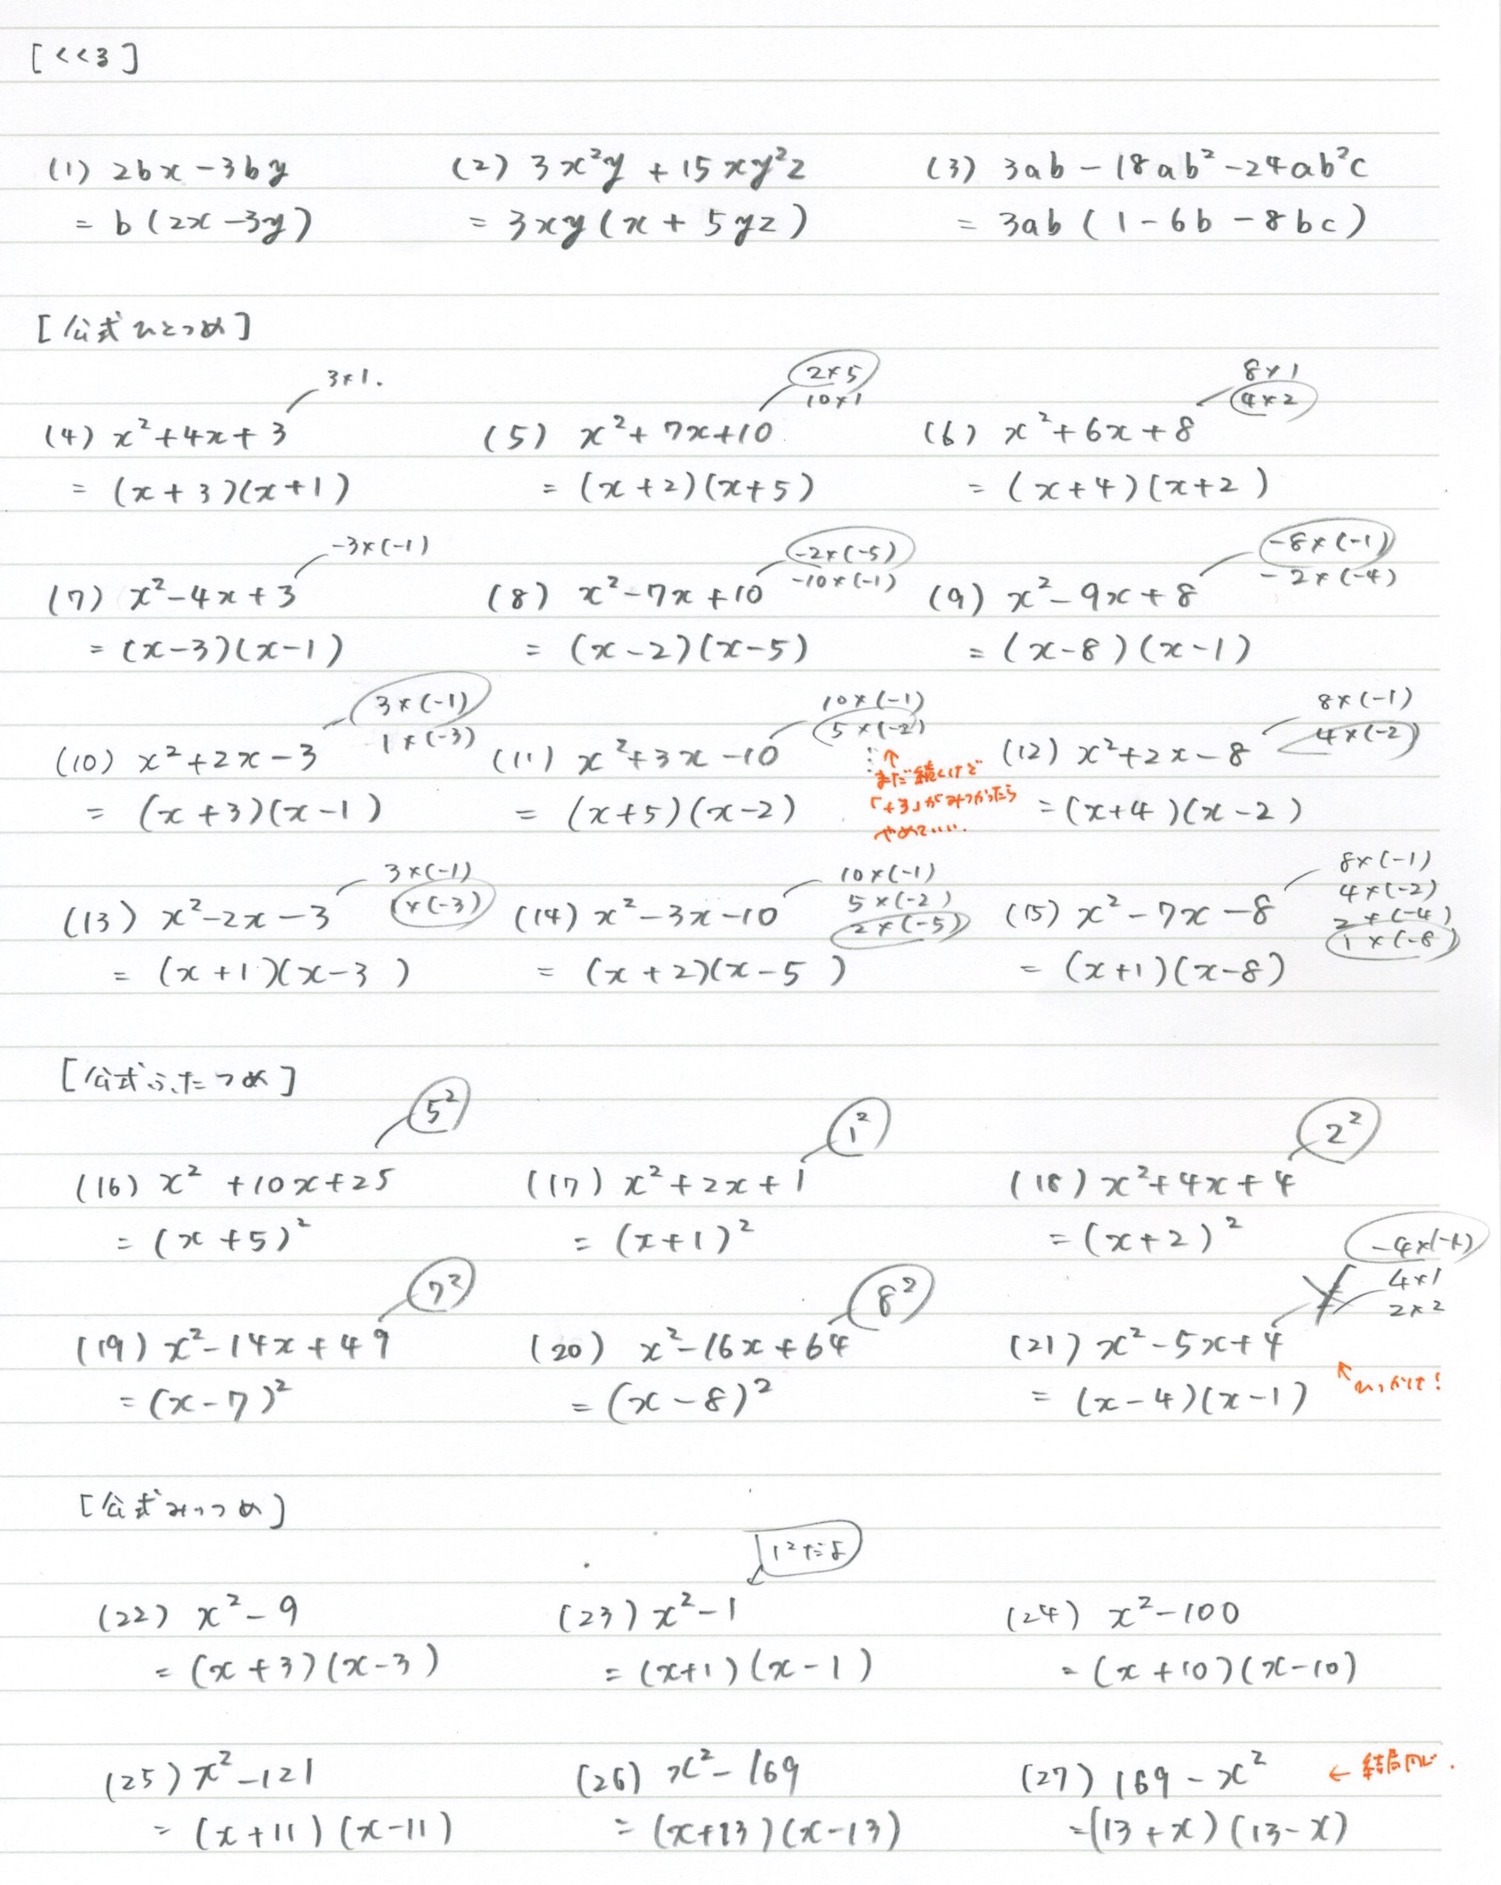 [くくる]
(1) 2bx-3by
= b(2x-3y)
(2) 3x²y+15xy²z
= 3xy(x+5yz)
(3) 3ab-18ab²-24ab²c
= 3ab(1-6b-8bc)
[公式ひとつめ]
3×1.
(4) x²+4x+3
= (x+3)(x+1)
2×5
10×1
(5) x²+7x+10
= (x+2)(x+5)
8×1
4×2
(6) x²+6x+8
= (x+4)(x+2)
-3×(-1)
(7) x²-4x+3
= (x-3)(x-1)
-2×(-5)
-10×(-1)
(8) x²-7x+10
= (x-2)(x-5)
-8×(-1)
-2×(-4)
(9) x²-9x+8
= (x-8)(x-1)
3×(-1)
1×(-3)
(10) x²+2x-3
= (x+3)(x-1)
10×(-1)
5×(-2)
(11) x²+3x-10
= (x+5)(x-2)
まだ続くけど
「+3」がみつかったら
やめていい.
8×(-1)
4×(-2)
(12) x²+2x-8
= (x+4)(x-2)
3×(-1)
1×(-3)
(13) x²-2x-3
= (x+1)(x-3)
10×(-1)
5×(-2)
2×(-5)
(14) x²-3x-10
= (x+2)(x-5)
8×(-1)
4×(-2)
2×(-4)
1×(-8
(15) x²-7x-8
= (x+1)(x-8)
[公式ふたつめ]
5²
(16) x²+10x+25
= (x+5)²
1²
(17) x²+2x+1
= (x+1)²
2²
(18) x²+4x+4
= (x+2)²
7²
(19) x²-14x+49
= (x-7)²
8²
(20) x²-16x+64
= (x-8)²
-4×(-1)
4×1
2×2
(21) x²-5x+4
= (x-4)(x-1)
↖ひっかけ!
[公式みっつめ]
(22) x²-9
= (x+3)(x-3)
1²だよ
(23) x²-1
= (x+1)(x-1)
(24) x²-100
= (x+10)(x-10)
(25) x²-121
= (x+11)(x-11)
(26) x²-169
= (x+13)(x-13)
(27) 169-x²
= (13+x)(13-x)
← 結局同じ.